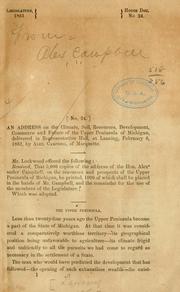 LEGISLATURE,
1861
HOUSE DOC.
No. 24.
From
Alex Campbell
[No. 24.]
AN ADDRESS on the Climate, Soil, Resources, Development,
Commerce and Future of the Upper Peninsula of Michigan,
delivered in Representative Hall, at Lansing, February 6,
1861, by ALEX. CAMPBELL, of Marquette.
Mr. Lockwood offered the following:
Resolved, That 3,000 copies of the address of the Hon. Alex-
ander Campbell, on the resources and prospects of the Upper
Peninsula of Michigan, be printed, 1000 of which shall be placed
in the hands of Mr. Campbell, and the remainder for the use of
the members of the Legislature;
Which was adopted.
THE UPPER PENINSULA.
Less than twenty-four years ago the Upper Peninsula became
a part of the State of Michigan. At that time it was considered
a comparatively worthless territory—its geographical
position being unfavorable to agriculture—its climate frigid
and unfriendly to all the pursuits we had come to regard as
necessary in the settlement of a State.
The man who would have predicted the development that has
followed—the opening of such exhaustless wealth—the exist-